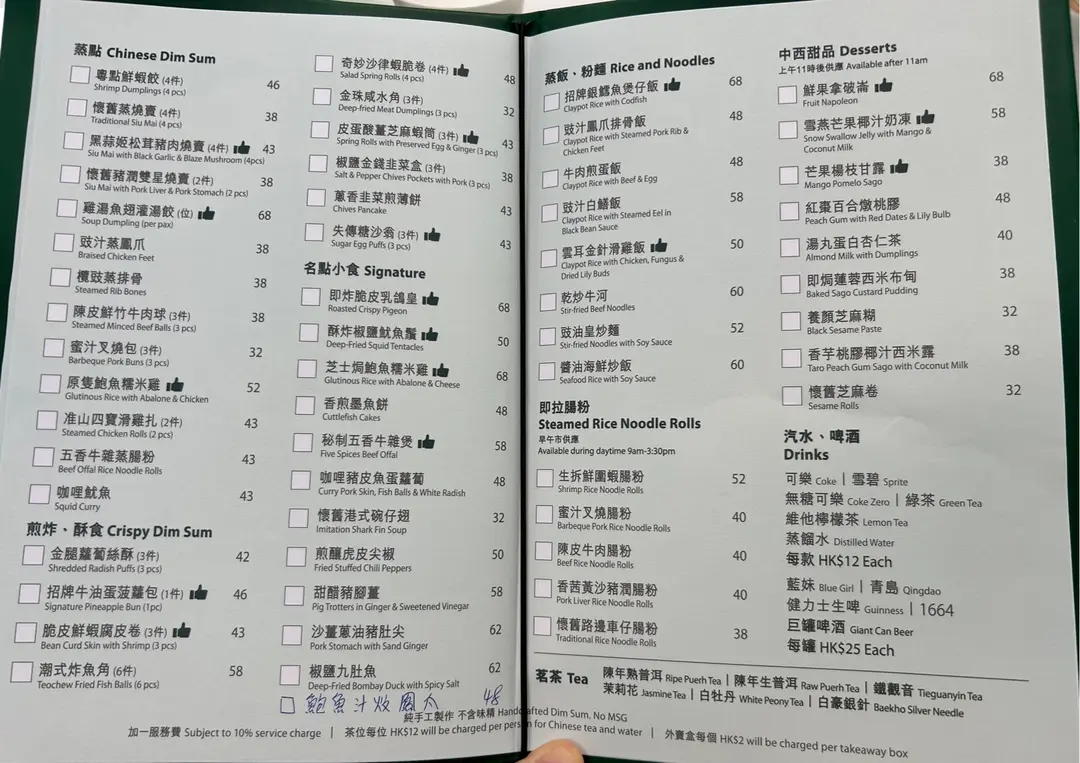 蒸點 Chinese Dim Sum
粵點鮮蝦餃 (4件) 46
Shrimp Dumplings (4 pcs)
懷舊蒸燒賣 (4件) 38
Traditional Siu Mai (4 pcs)
黑蒜姬松茸豬肉燒賣 (4件) 43
Siu Mai with Black Garlic & Blaze Mushroom (4pcs)
懷舊豬潤雙星燒賣 (2件) 38
Siu Mai with Pork Liver & Pork Stomach (2 pcs)
雞湯魚翅灌湯餃 (位) 68
Soup Dumpling (per pax)
豉汁蒸鳳爪 38
Braised Chicken Feet
欖豉蒸排骨 38
Steamed Rib Bones
陳皮鮮竹牛肉球 (3件) 38
Steamed Minced Beef Balls (3 pcs)
蜜汁叉燒包 (3件) 32
Barbeque Pork Buns (3 pcs)
原隻鮑魚糯米雞 52
Glutinous Rice with Abalone & Chicken
准山四寶滑雞扎 (2件) 43
Steamed Chicken Rolls (2 pcs)
五香牛雜蒸腸粉 43
Beef Offal Rice Noodle Rolls
咖哩魷魚 43
Squid Curry
煎炸、酥食 Crispy Dim Sum
金腿蘿蔔絲酥 (3件) 42
Shredded Radish Puffs (3 pcs)
招牌牛油蛋菠蘿包 (1件) 46
Signature Pineapple Bun (1pc)
脆皮鮮蝦腐皮卷 (3件) 43
Bean Curd Skin with Shrimp (3 pcs)
潮式炸魚角 (6件) 58
Teochew Fried Fish Balls (6 pcs)
奇妙沙律蝦脆卷 (4件) 48
Salad Spring Rolls (4 pcs)
金珠咸水角 (3件) 32
Deep-fried Meat Dumplings (3 pcs)
皮蛋酸薑芝麻蝦筒 (3件) 43
Spring Rolls with Preserved Egg & Ginger (3 pcs)
椒鹽金錢韭菜盒 (3件) 38
Salt & Pepper Chives Pockets with Pork (3 pcs)
蔥香韭菜煎薄餅 43
Chives Pancake
失傳糖沙翁 (3件) 43
Sugar Egg Puffs (3 pcs)
名點小食 Signature
即炸脆皮乳鴿皇 68
Roasted Crispy Pigeon
酥炸椒鹽魷魚鬚 50
Deep-Fried Squid Tentacles
芝士焗鮑魚糯米雞 68
Glutinous Rice with Abalone & Cheese
香煎墨魚餅 48
Cuttlefish Cakes
秘制五香牛雜煲 58
Five Spices Beef Offal
咖哩豬皮魚蛋蘿蔔 48
Curry Pork Skin, Fish Balls & White Radish
懷舊港式碗仔翅 32
Imitation Shark Fin Soup
煎釀虎皮尖椒 50
Fried Stuffed Chili Peppers
甜醋豬腳薑 58
Pig Trotters in Ginger & Sweetened Vinegar
沙薑蔥油豬肚尖 62
Pork Stomach with Sand Ginger
椒鹽九肚魚 62
Deep-Fried Bombay Duck with Spicy Salt
鮑魚汁炆鳳爪 48
蒸飯、粉麵 Rice and Noodles
招牌銀鱈魚煲仔飯 68
Claypot Rice with Codfish
豉汁鳳爪排骨飯 48
Claypot Rice with Steamed Pork Rib &
Chicken Feet
牛肉煎蛋飯 48
Claypot Rice with Beef & Egg
豉汁白鱔飯 58
Claypot Rice with Steamed Eel in
Black Bean Sauce
雲耳金針滑雞飯 50
Claypot Rice with Chicken, Fungus &
Dried Lily Buds
乾炒牛河 60
Stir-fried Beef Noodles
豉油皇炒麵 52
Stir-fried Noodles with Soy Sauce
醬油海鮮炒飯 60
Seafood Rice with Soy Sauce
即拉腸粉
Steamed Rice Noodle Rolls
早午市供應
Available during daytime 9am-3:30pm
生拆鮮團蝦腸粉 52
Shrimp Rice Noodle Rolls
蜜汁叉燒腸粉 40
Barbeque Pork Rice Noodle Rolls
陳皮牛肉腸粉 40
Beef Rice Noodle Rolls
香茜黃沙豬潤腸粉 40
Pork Liver Rice Noodle Rolls
懷舊路邊車仔腸粉 38
Traditional Rice Noodle Rolls
中西甜品 Desserts
上午11時後供應 Available after 11am
鮮果拿破崙 68
Fruit Napoleon
雪燕芒果椰汁奶凍 58
Snow Swallow Jelly with Mango &
Coconut Milk
芒果楊枝甘露 38
Mango Pomelo Sago
紅棗百合燉桃膠 48
Peach Gum with Red Dates & Lily Bulb
湯丸蛋白杏仁茶 40
Almond Milk with Dumplings
即焗蓮蓉西米布甸 38
Baked Sago Custard Pudding
養顏芝麻糊 32
Black Sesame Paste
香芋桃膠椰汁西米露 38
Taro Peach Gum Sago with Coconut Milk
懷舊芝麻卷 32
Sesame Rolls
汽水、啤酒
Drinks
可樂 Coke | 雪碧 Sprite
無糖可樂 Coke Zero | 綠茶 Green Tea
維他檸檬茶 Lemon Tea
蒸餾水 Distilled Water
每款 HK$12 Each
藍妹 Blue Girl | 青島 Qingdao
健力士生啤 Guinness | 1664
巨罐啤酒 Giant Can Beer
每罐 HK$25 Each
茗茶 Tea
陳年熟普洱 Ripe Puerh Tea | 陳年生普洱 Raw Puerh Tea | 鐵觀音 Tieguanyin Tea
茉莉花 Jasmine Tea | 白牡丹 White Peony Tea | 白豪銀針 Baekho Silver Needle
純手工製作 不含味精 Handcrafted Dim Sum, No MSG
加一服務費 Subject to 10% service charge | 茶位每位 HK$12 will be charged per person for Chinese tea and water | 外賣盒每個 HK$2 will be charged per takeaway box